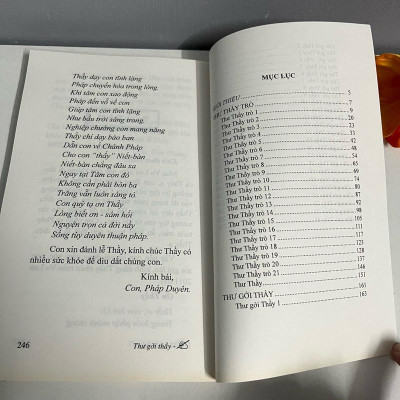 Thầy dạy con tĩnh lặng
Pháp chuyển hóa trong lòng.
Khi tâm con xao động
Pháp đến vỗ về con
Giúp tâm con tĩnh lặng
Như bầu trời sáng trong.
Nghiệp chướng con mang nặng
Thầy chỉ dạy bảo ban
Dẫn con về Chánh Pháp
Cho con "thấy" Niết-bàn
Niết-bàn chẳng đâu xa
Ngay tại Tâm con đó
Không cần phải bôn ba
Trăng vẫn luôn sáng tỏ
Con quỳ tạ ơn Thầy
Lòng biết ơn - sám hối
Nguyện trọn cả đời nầy
Sống tùy duyên thuận pháp.
Con xin đảnh lễ Thầy, kính chúc Thầy có
nhiều sức khỏe để dìu dắt chúng con.
Kính bái,
Con, Pháp Duyên.
246
Thư gởi thầy -
MỤC LỤC
THIỆU 5
THẦY TRÒ 7
Thư Thầy trò 1 9
Thư Thầy trò 2 20
Thư Thầy trò 3 23
Thư Thầy trò 4 33
Thư Thầy trò 5 42
Thư Thầy trò 6 48
Thư Thầy trò 7 54
Thư Thầy trò 8 65
Thư Thầy trò 9 69
Thư Thầy trò 10 74
Thư Thầy trò 11 80
Thư Thầy trò 12 87
Thư Thầy trò 13 92
Thư Thầy trò 14 97
Thư Thầy trò 15 105
Thư Thầy trò 16 117
Thư Thầy trò 17
Thư Thầy trò 18
Thư Thầy trò 19
Thư Thầy trò 20 136
Thư Thầy trò 21 146
Thư Thầy 151
THƯ GỞI THẦY 161
Thư gởi Thầy 1 163